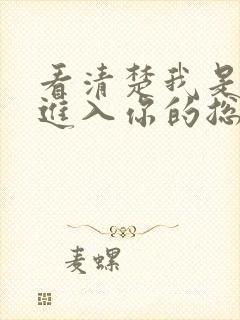 看清楚我是
進入你的总
麦螺